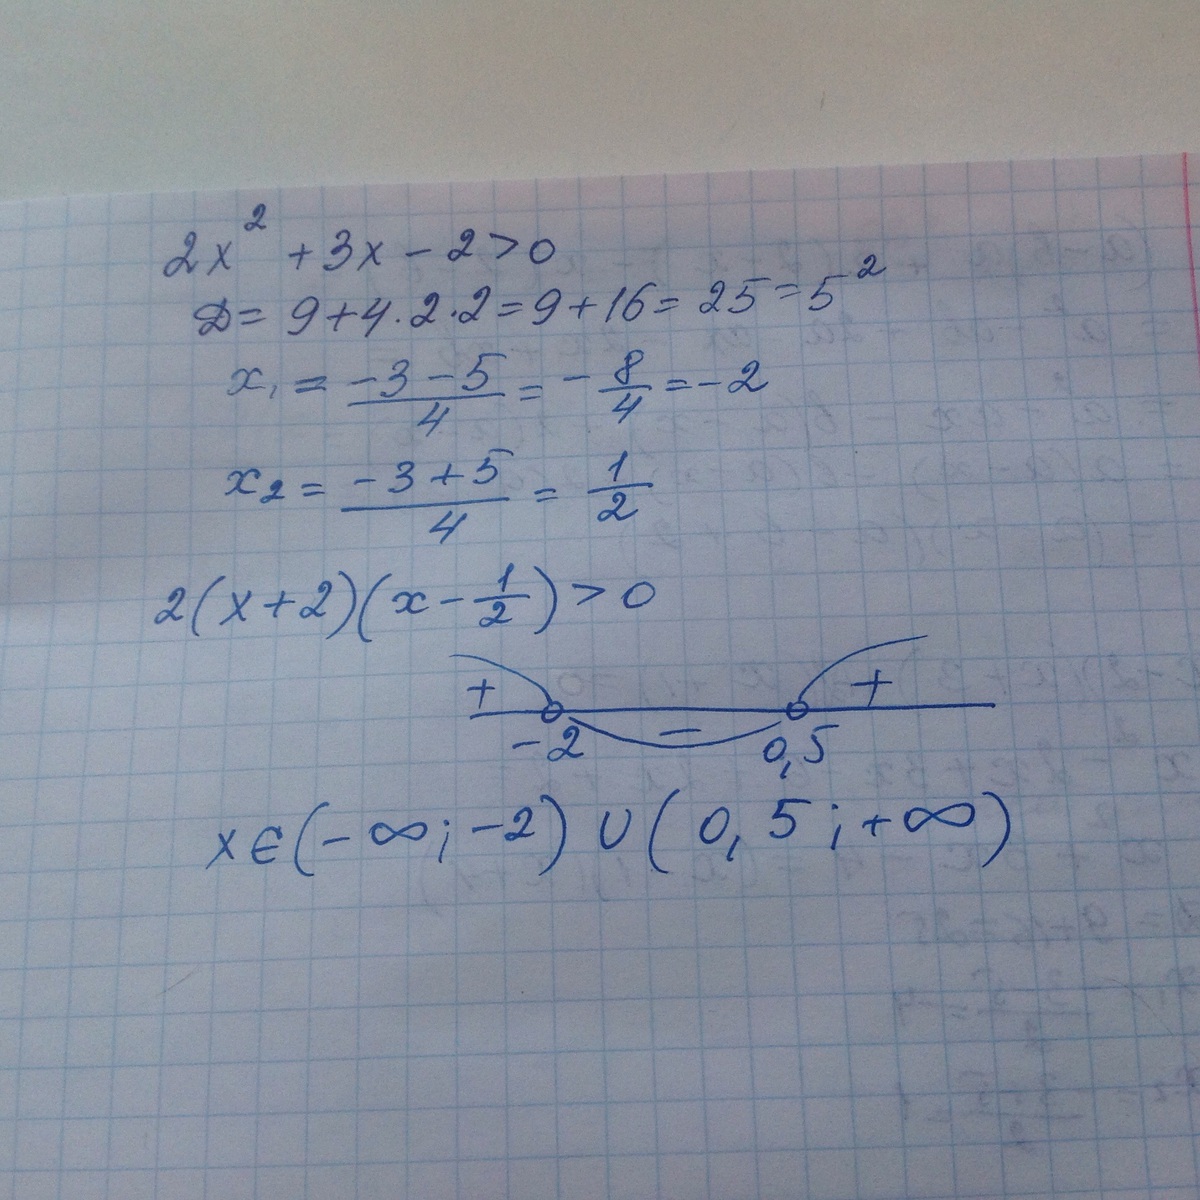 2x² + 3x - 2 > 0
D = 9 + 4 · 2 · 2 = 9 + 16 = 25 = 5²
x₁ = (-3 - 5)/4 = -8/4 = -2
x₂ = (-3 + 5)/4 = 1/2
2(x + 2)(x - 1/2) > 0
+ - +
-2 0,5
x ∈ (-∞; -2) ∪ (0,5; +∞)